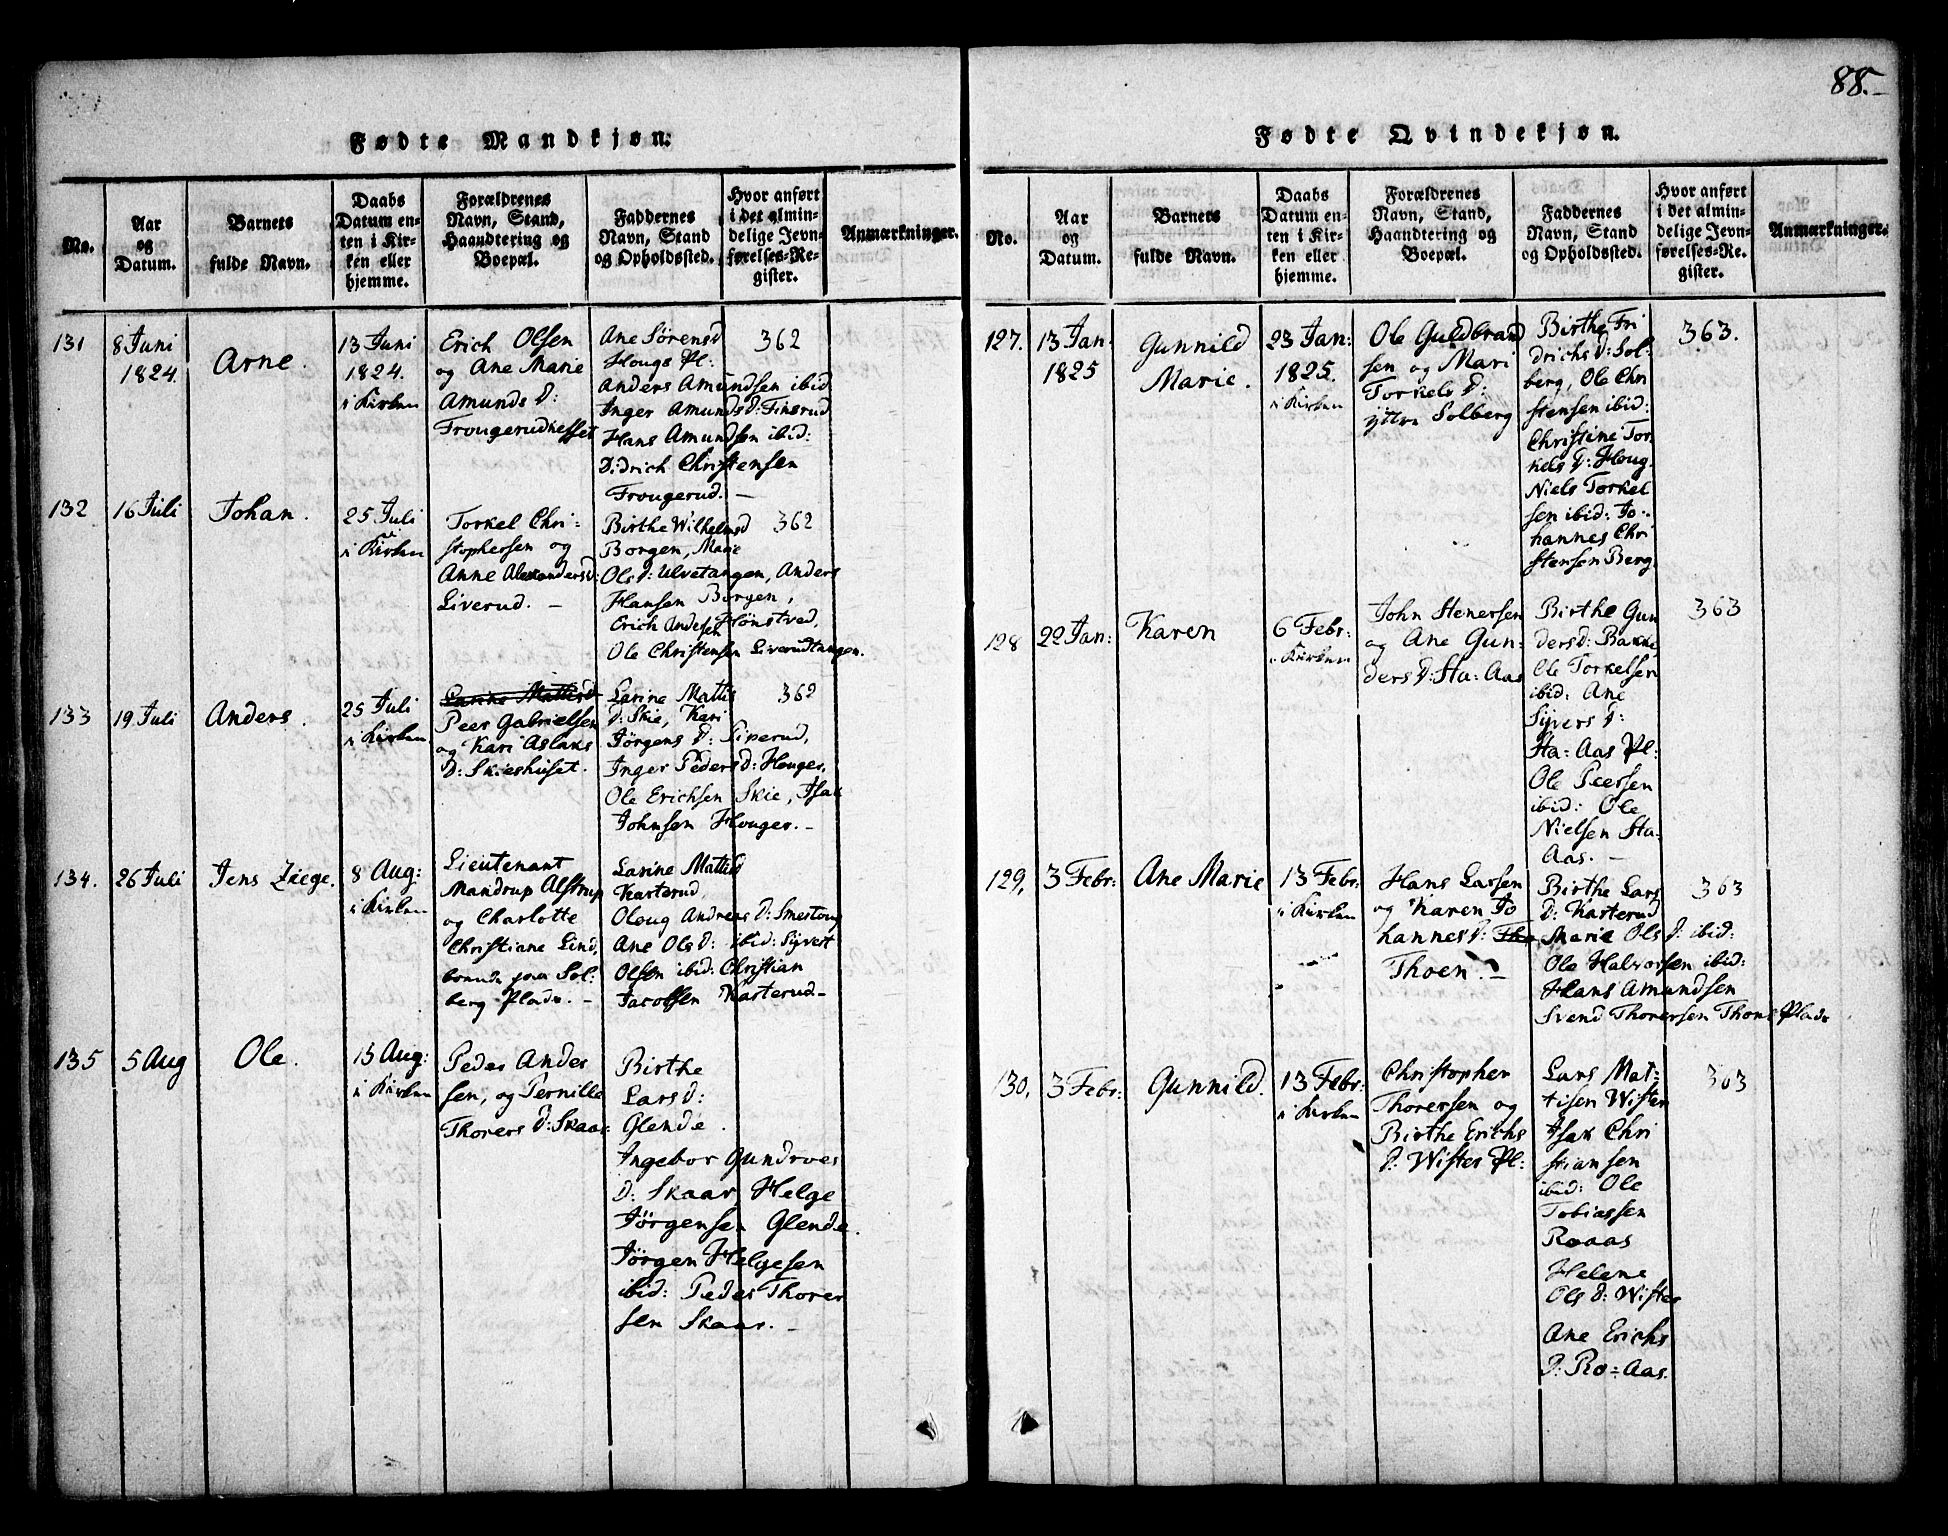 88.
Fødte Mandkjøn:
No.
Aar
og
Datum.
Barnets
fulde Navn.
Daabs
Datum en-
ten i Kir-
ken eller
hjemme.
Forældrenes
Navn, Stand,
Haandtering og
Boepæl.
Faddernes
Navn, Stand
og Opholdssted.
Hvor anført
i det almin-
delige Jevn-
førelses-Re-
gister.
Anmærkninger.
131
8 Juni
1824.
Arne.
13 Juni
1824.
i Kirken
Erich Olsen
og Ane Marie
Amunds D:
Frougerudhesset
Ane Sörensd
Hougs Pl:
Anders Amundsen ibid
Inger Amunds D: Finsrud
Hans Amundsen ibid:
Didrich Christensen
Frougerud. –
362
132
16 Juli
Johan.
25 Juli
i Kirken
Torkel Chri-
stophersen og
Anne Alexandersd:
Liverud. –
Birthe Wilhelmsd
Borgen, Marie
Ols D: Ulvetangen, Anders
Hansen Borgen,
Erich Andesen Hönstved,
Ole Christensen Liverudtangen.
362
133
19 Juli
Anders.
25 Juli
i Kirken
Larine Mattisd
Peer Gabrielsen
og Kari Aslaks
D: Skieshuset.
Larine Mattis
D: Skie, Kari
Jörgens D: Siverud,
Inger Peders D: Houger,
Ole Erichsen Skie, Isak
Johnsen Houger. –
362
134.
26 Juli
Jens Ziege.
8 Aug:
i Kirken
Lieutenant
Mandrup Alstrup
og Charlotte
Christiane Lind,
boende paa Sol-
berg Plads. –
Larine Mattisd
Karterud,
Oloug Andreas D: Smestoug
Ane Ols D: ibid: Sijvert
Olsen ibid: Christian
Jacobsen Karterud –
135
5 Aug
Ole.
15 Aug:
i Kirken
Peder Ander
sen, og Pernille
Thorers D: Skaar
Birthe
Lars D:
Glende.
Ingebor Gundroes
D: Skaar, Helge
Jörgensen Glende.
Jörgen Helgesen
ibid: Peder Thorer
sen Skaar. –
Fødte Qvindekjøn.
No.
Aar
og
Datum.
Barnets
fulde Navn.
Daabs
Datum en-
ten i Kir-
ken eller
hjemme.
Forældrenes
Navn, Stand,
Haandtering og
Boepæl.
Faddernes
Navn, Stand
og Opholdssted.
Hvor anført
i det almin-
delige Jevn-
førelses-Re-
gister.
Anmærkninger.
127.
13 Jan.
1825
Gunnild
Marie.
23 Jan:
1825.
i Kirken
Ole Guldbrand
sen og Mari
Torkels D:
yttre Solberg
Birthe Fri
drichs D: Sol-
berg, Ole Chri
stensen ibid:
Christine Tor
kels D: Houg.
Niels Torkel
sen ibid: Jo-
hannes Chri
stensen Berg
363.
128
22 Jan:
Karen
6 Febr:
i Kirken
John Stenersen
og Ane Gun-
ders D: Sta: Aas
Birthe Gun
dersd: Bakke,
Ole Torkelsen
ibid: Ane
Sijvers D:
Sta: Aas Pl:
Ole Peersen
ibid: Ole
Nielsen Sta-
Aas. –
363
129,
3 Febr:
Ane Marie
13 Febr:
i Kirken
Hans Larsen
og Karen Jo
hannes D: Tho
Thoen. –
Birthe Lars
D: Karterud
Marie Ols D: ibid:
Ole Halvorsen ibid:
Hans Amundsen
Svend Thorersen Thons Plads
363
130,
3 Febr:
Gunnild.
13 Febr:
i Kirken
Christopher
Thorersen og
Birthe Erichs
D: Wister Pl:
Lars Mat-
tisen Wister
Isak Chri
stiansen
ibid: Ole
Tobiassen
Roaas
Helene
Ols D: Wister
Ane Erichs
D: Ro-Aas.
363